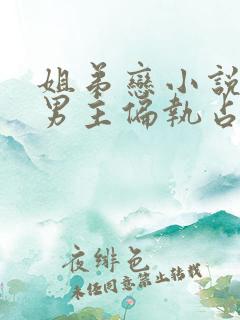 姐弟戀小說
男主偏執占
夜緋色
未任同意禁止转载